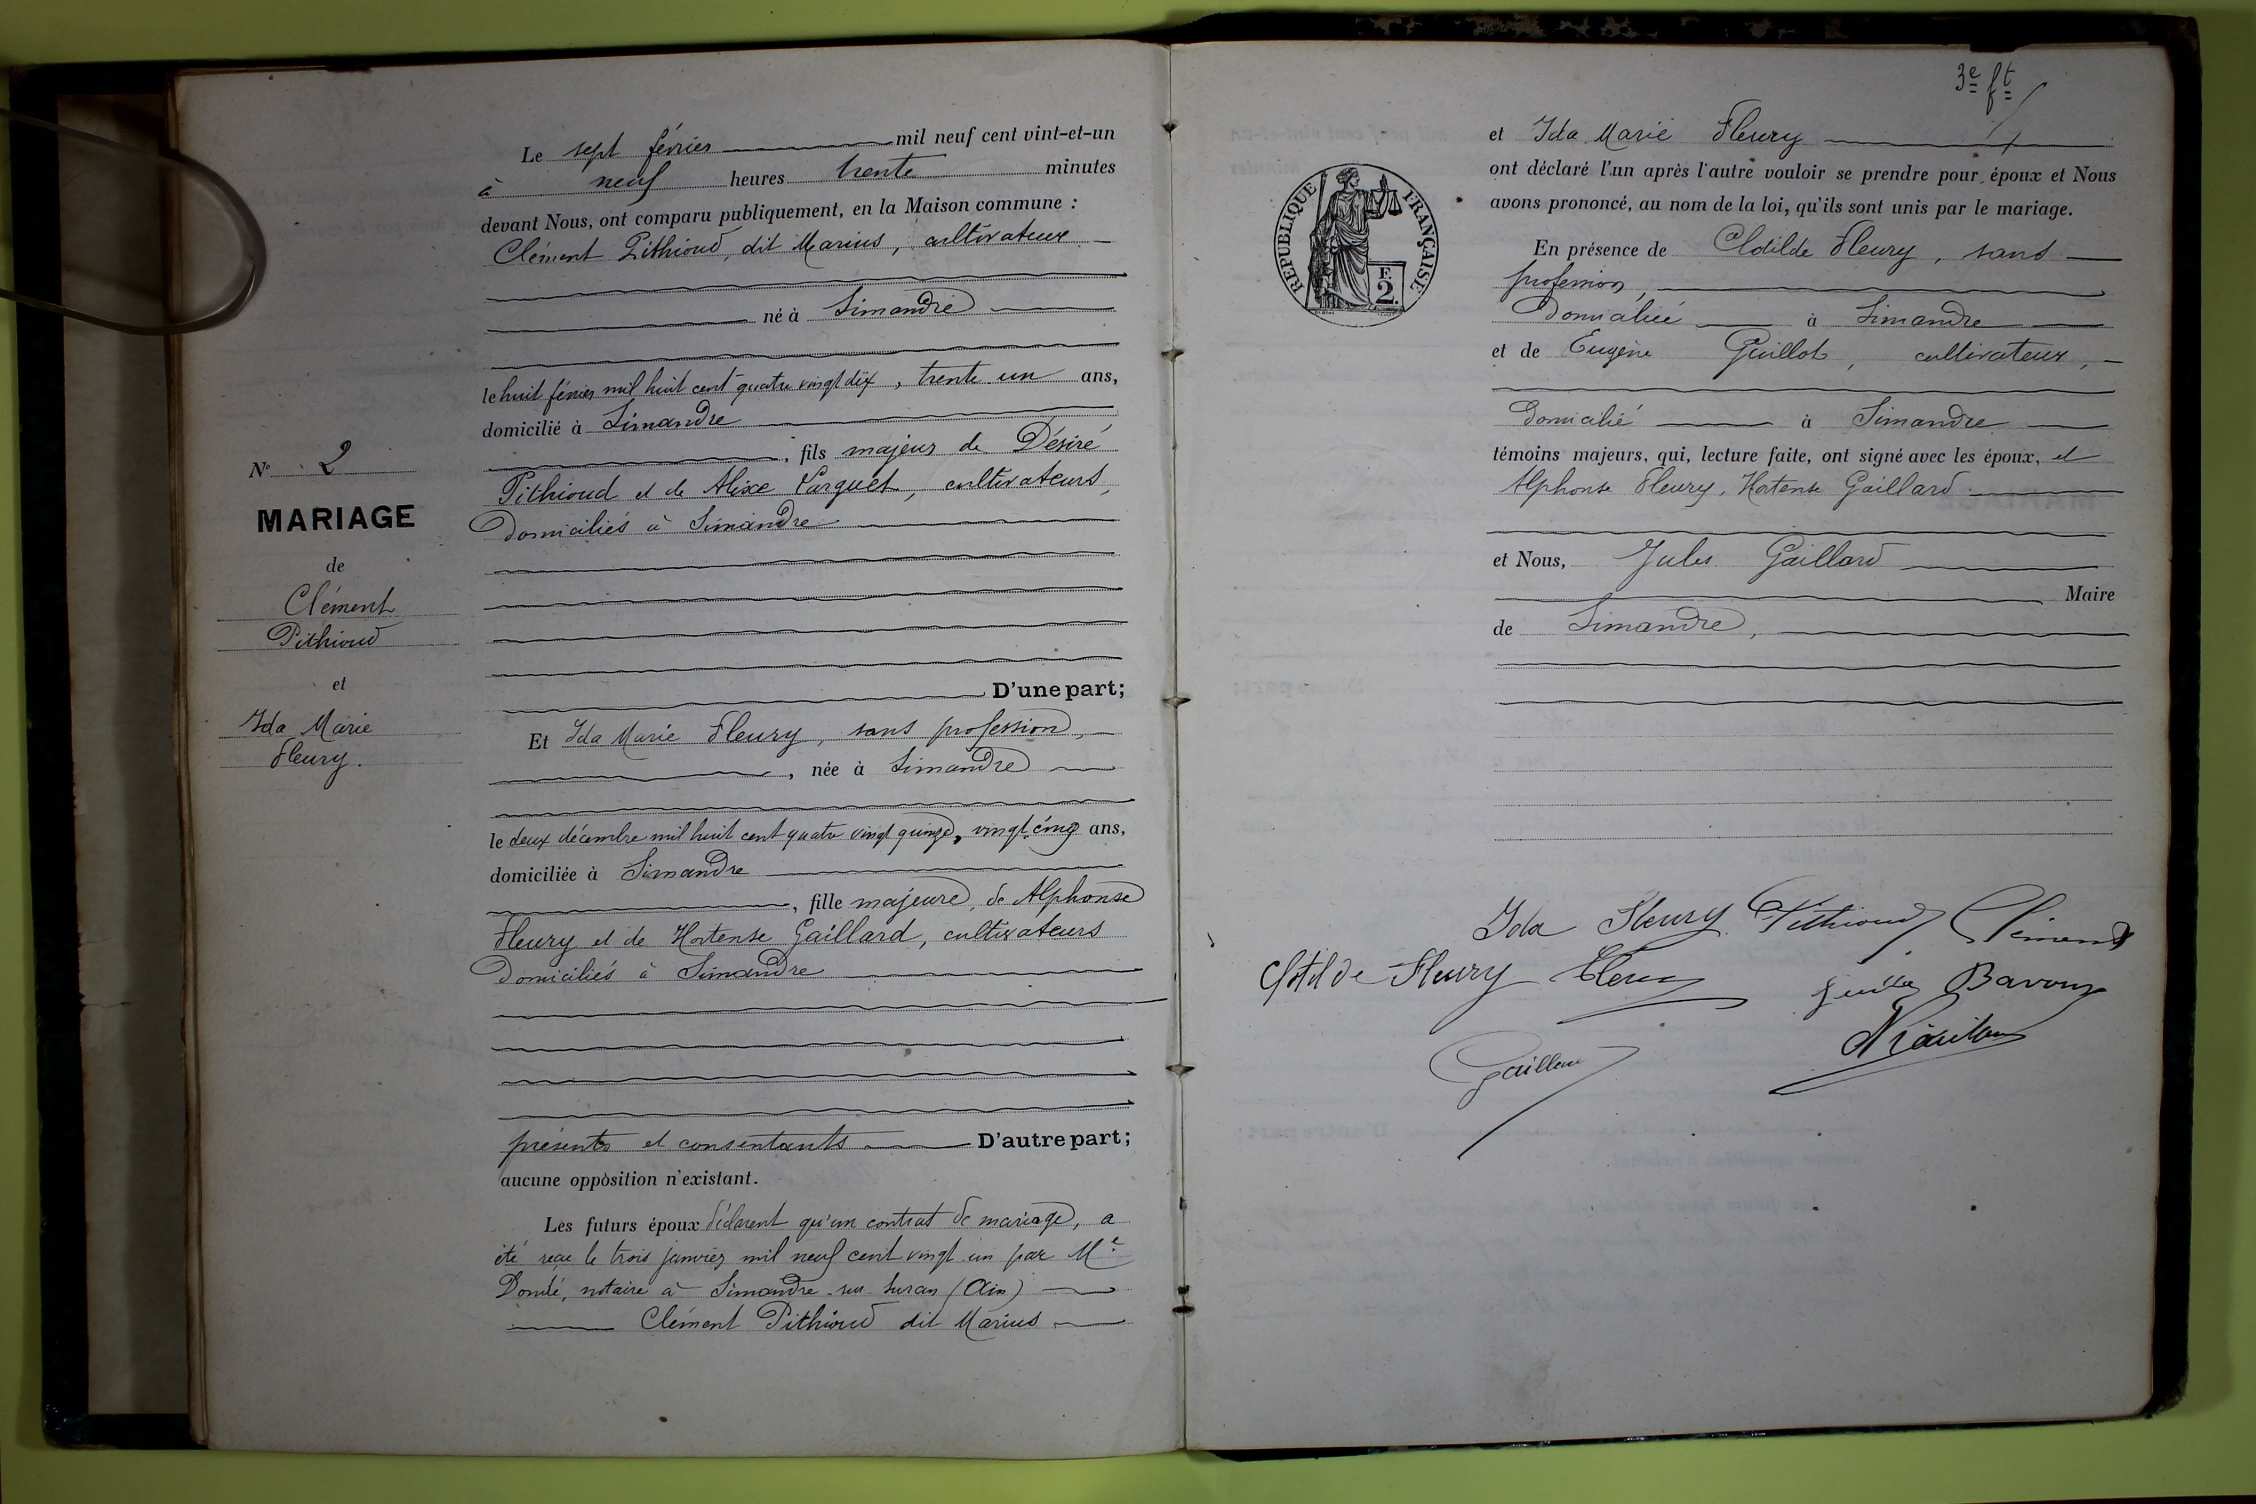 N° 2
MARIAGE
de
Clément
Pithioud
et
Ida Marie
Fleury.
Le sept février mil neuf cent vint-et-un
à neuf heures trente minutes
devant Nous, ont comparu publiquement, en la Maison commune :
Clément Pithioud, dit Marius, cultivateur
né à Simandre
le huit février mil huit cent quatre vingt dix, trente un ans,
domicilié à Simandre
, fils majeur de Désiré
Pithioud et de Alixe Parquet, cultivateurs,
domiciliés à Simandre
D'une part;
Et Ida Marie Fleury, sans profession,
, née à Simandre
le deux décembre mil huit cent quatre vingt quinze, vingt cinq ans,
domiciliée à Simandre
, fille majeure, de Alphonse
Fleury et de Hortense Gaillard, cultivateurs
domiciliés à Simandre
présents et consentants D'autre part;
aucune opposition n'existant.
Les futurs époux déclarent qu'un contrat de mariage, a
été reçu le trois janvier mil neuf cent vingt un par Me
notaire à Simandre sur Suran (Ain)
Clément Pithioud dit Marius
3e ft
REPUBLIQUE FRANÇAISE
F.
2.
et Ida Marie Fleury
ont déclaré l'un après l'autre vouloir se prendre pour époux et Nous
avons prononcé, au nom de la loi, qu'ils sont unis par le mariage.
En présence de Clotilde Fleury, sans
profession,
domiciliée à Simandre
et de Eugène Guillot, cultivateur,
domicilié à Simandre
témoins majeurs, qui, lecture faite, ont signé avec les époux, et
Alphonse Fleury, Hortense Gaillard
et Nous, Jules Gaillard
Maire
de Simandre,
Ida Fleury Pithioud Clément
Clotilde Fleury Fleury Bavoux
Gaillard